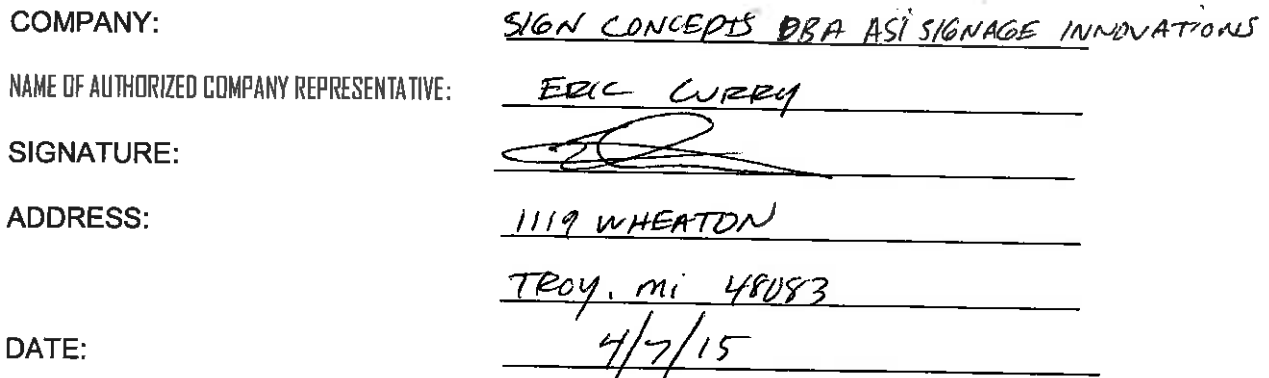 COMPANY: SIGN CONCEPTS DBA ASI SIGNAGE INNOVATIONS
NAME OF AUTHORIZED COMPANY REPRESENTATIVE: ERIC CURRY
SIGNATURE:
ADDRESS: 1119 WHEATON
TROY, Mi 48083
DATE: 4/7/15